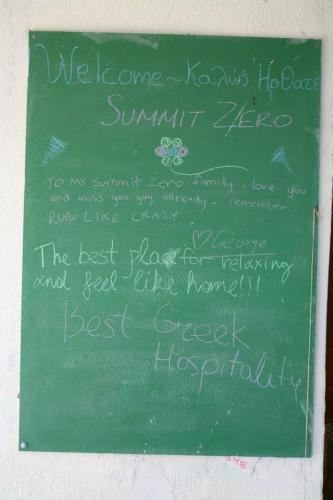 Welcome ~ Καλώς Ήρθατε
SUMMIT ZERO
TO MY summit Zero family, love you
and miss you guy allready. remember
RUN LIKE CRAZY
George
The best place for relaxing
and feel like home!!!
Best Greek
Hospitality